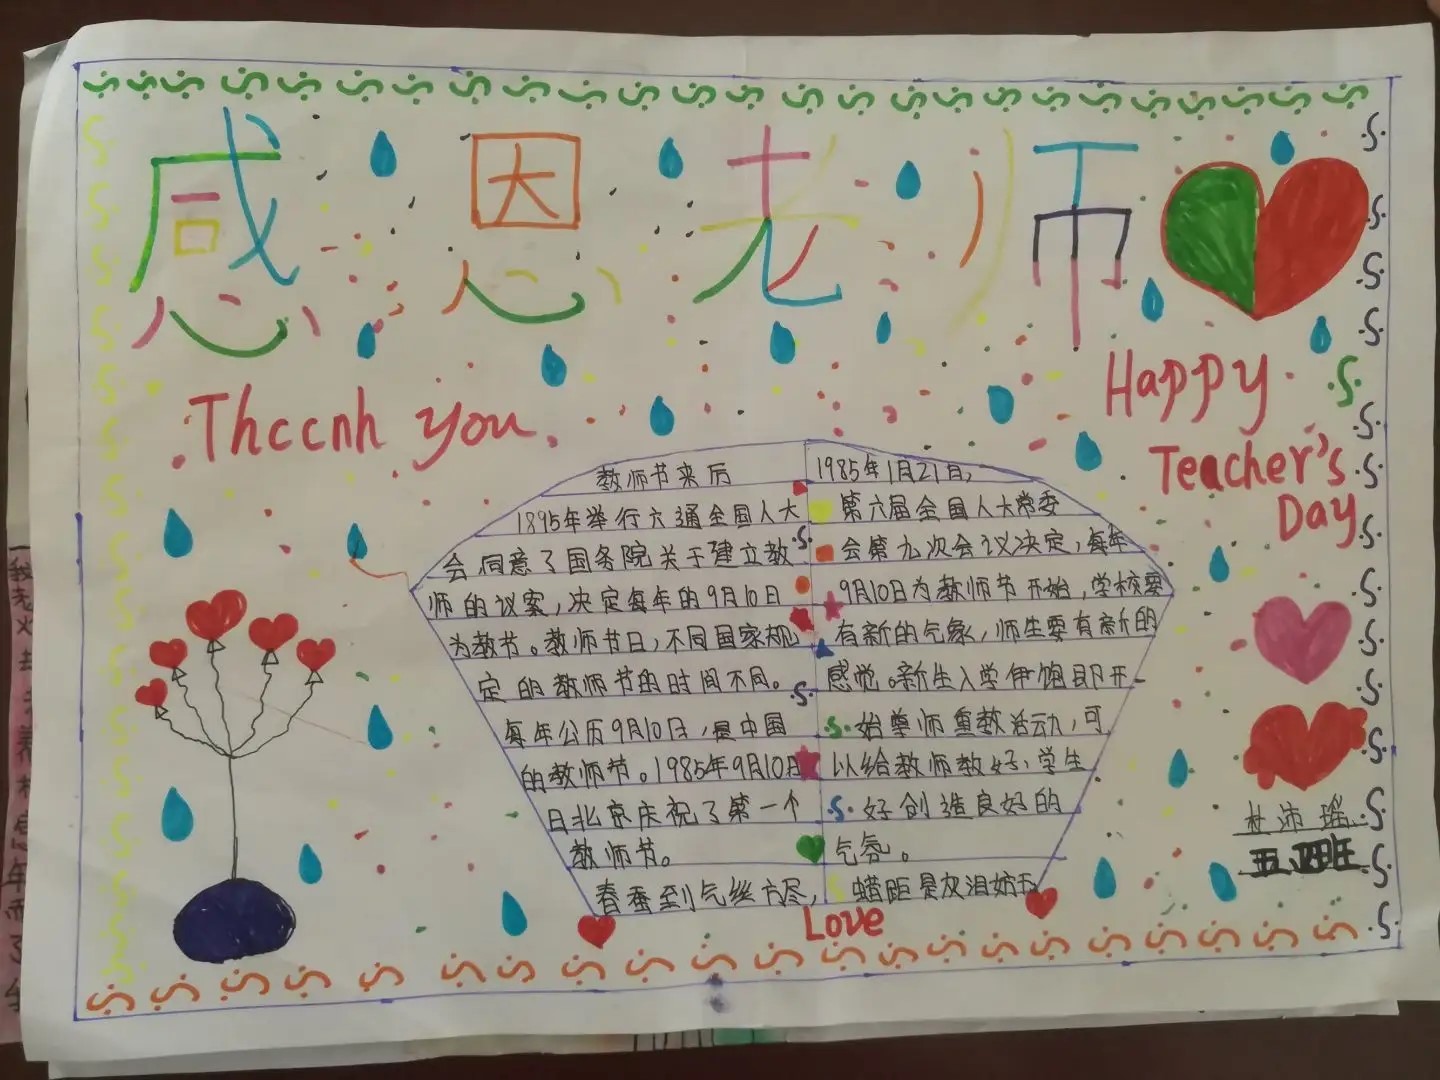 感恩老师
Thccnh you
Happy
Teacher's
Day
教师节来历
1895年举行六通全国人大
会同意了国务院关于建立教
师的议案，决定每年的9月10日
为教节。教师节日，不同国家规
定的教师节的时间不同。
每年公历9月10日，是中国
的教师节。1985年9月10日
日北京庆祝了第一个
教师节。
春蚕到气丝方尽，
1985年1月21日，
第六届全国人大常委
会第九次会议决定，每年
9月10日为教师节开始，学校要
有新的气象，师生要有新的
感觉。新生入学伊始即开
始尊师重教活动，可
以给教师教好、学生
好创造良好的
气氛。
蜡距是灰泪始
Love
杜沛瑶
五、四班